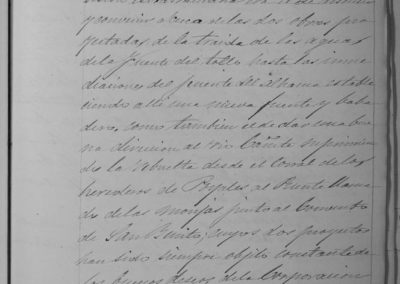 y convenir acerca de las dos obras pro
yectadas, de la traida de las aguas
de la Fuente del hasta las inme
diaciones del puente del Alhama estable
ciendo alli una nueva fuente y laba
dero, como tambien el de dar una bue
na direccion al rio Cañete suprimien
do la rebuelta desde el Corral de los
herederos de al Puente llama
do de las Monjas junto al Convento
de San Benito, cuyos dos proyectos
han sido siempre objeto constante de
los buenos deseos de la Corporacion